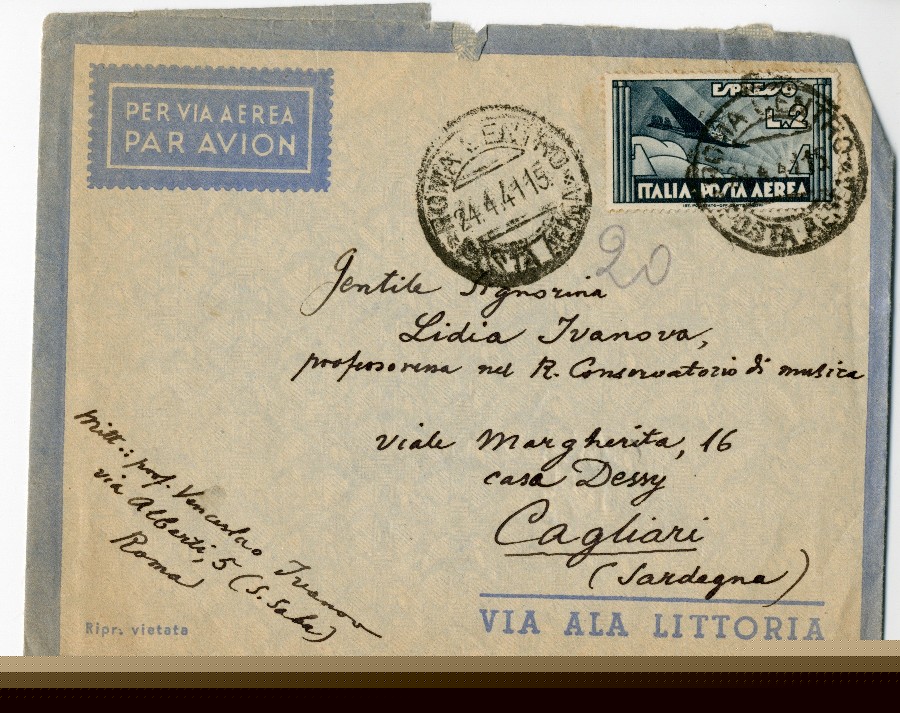 PER VIA AEREA
PAR AVION
ESPRESSO
L. 2
ITALIA POSTA AEREA
ROMA CENTRO
24.4.41 15
POSTA AEREA
ROMA CENTRO
24.4.41 15
POSTA AEREA
20
Gentile Signorina
Lidia Ivanova,
professoressa nel R. Conservatorio di musica
viale Margherita, 16
casa Dessy
Cagliari
(Sardegna)
Mitt.: prof. Venceslao Ivanov
via Alberti, 5 (S. Saba)
Roma
Ripr. vietata
VIA ALA LITTORIA